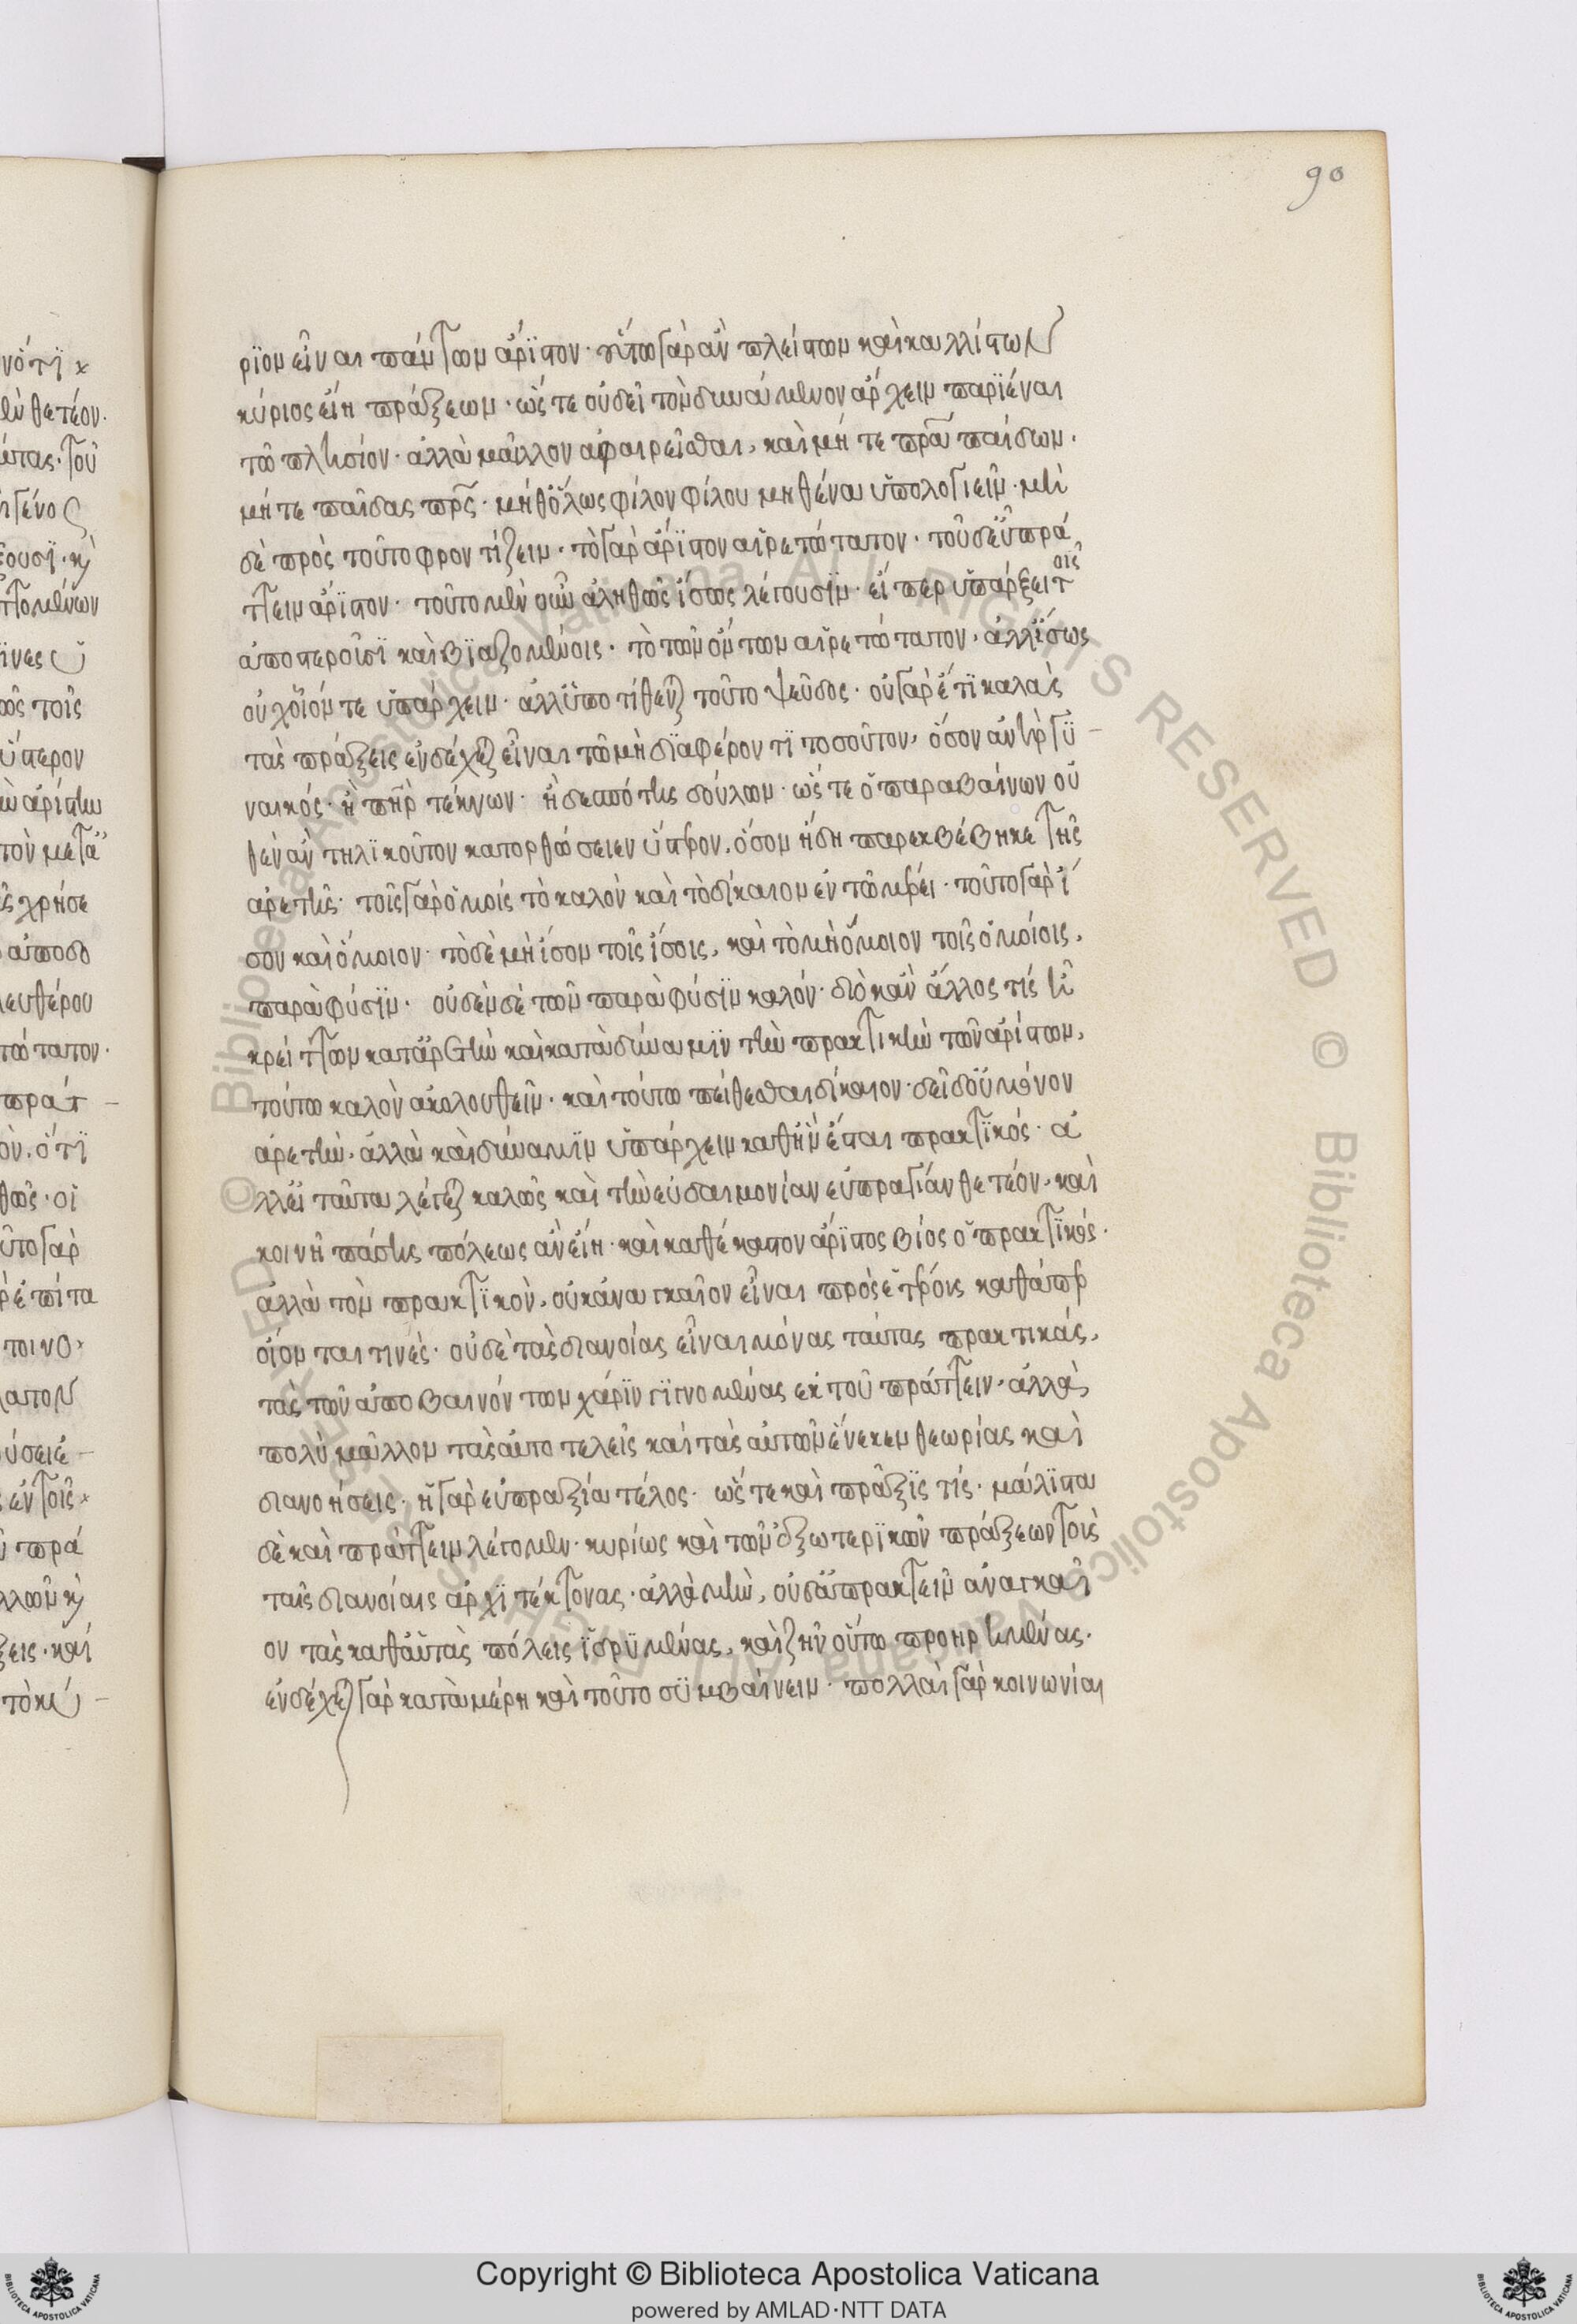 90
ρϊον εἶναι πάντων ἄριστον· οὕτω γὰρ ἂν πλείστων καὶ καλλίστων
κύριος εἴη πράξεων· ὥς τε οὐ δεῖ τὸν δυνάμενον ἄρχειν παρϊέναι
τῶ πλησίον· ἀλλὰ μᾶλλον ἀφαιρεῖσθαι, καὶ μή τε πρα παίδων·
μή τε παῖδας πρς· μήθ' ὅλως φίλον φίλου μηθένα ὑπολογιεῖν· μη
δὲ πρὸς τοῦτο φροντίζειν· τὸ γὰρ ἄριστον αἱρετώτατον· τοῦ δ' εὖ πρά
ττειν ἄριστον· τοῦτο μὲν οὖν ἀληθῶς ἴσως λέγουσϊν· εἴπερ ὑπάρξει τοῖς
ἀποστεροῦσϊ καὶ βϊαζομένοις· τὸ τῶν ὄντων αἱρετώτατον· ἀλλ' ἴσως
οὐχ' οἷόν τε ὑπάρχειν· ἀλλ' ὑποτίθενται τοῦτο ψεῦδος· οὐ γὰρ ἔτϊ καλὰς
τὰς πράξεις ἐνδέχεται εἶναι τῶ μὴ δϊαφέροντϊ τοσοῦτον, ὅσον ἀνὴρ γϋ
ναικός· ἢ πηρ τέκνων· ἢ δεσπότης δούλων· ὥς τε ὁ παραβαίνων οὐ
θὲν ἂν τηλϊκοῦτον κατορθώσειεν ὕστερον, ὅσον ἤδη παρεκβέβηκε τῆς
ἀρετῆς· τοῖς γὰρ ὁμοίοις τὸ καλὸν καὶ τὸ δίκαιον ἐν τῶ μέρει· τοῦτο γὰρ ἴ
σον καὶ ὅμοιον· τὸ δὲ μὴ ἴσον τοῖς ἴσοις, καὶ τὸ μὴ ὅμοιον τοῖς ὁμοίοις,
παρὰ φύσϊν· οὐδὲν δὲ τῶν παρὰ φύσϊν καλόν· διὸ κἂν ἄλλος τίς ἦ
κρείττων κατ' ἀρετὴν καὶ κατὰ δύναμϊν τὴν πρακτικὴν τῶν ἀρίστων,
τούτω καλὸν ἀκολουθεῖν· καὶ τούτω πείθεσθαι δίκαιον· δεῖ δ' οὐ μόνον
ἀρετὴν, ἀλλὰ καὶ δύναμϊν ὑπάρχειν καθ' ἣν ἔσται πρακτϊκός· ἀ
λλ' εἰ ταῦτα λέγεται καλῶς καὶ τὴν εὐδαιμονίαν εὐπραγίαν θετέον, καὶ
κοινῆ πάσης πόλεως ἂν εἴη· καὶ καθ' ἕκαστον ἄριστος βίος ὁ πρακτϊκός·
ἀλλὰ τὸν πρακτϊκὸν, οὐκ ἀναγκαῖον εἶναι πρὸς ἑτέρους καθάπερ
οἴονται τινές· οὐδὲ τὰς διανοίας εἶναι μόνας ταύτας πρακτικάς,
τὰς τῶν ἀποβαινόντων χάρϊν γϊγνομένας ἐκ τοῦ πράττειν· ἀλλὰ,
πολὺ μᾶλλον τὰς αὐτοτελεῖς καὶ τὰς αὐτῶν ἕνεκεν θεωρίας καὶ
διανοήσεις· ἡ γὰρ εὐπραξία τέλος· ὥς τε καὶ πρᾶξϊς τίς· μάλϊστα
δὲ καὶ πράττειν λέγομεν· κυρίως καὶ τῶν ἐξωτερϊκῶν πράξεων τοὺς
ταῖς διανοίαις ἀρχϊτέκτονας· ἀλλὰ μὴν, οὐδ' ἀπρακτεῖν ἀναγκαῖ
ον τὰς καθ' αὑτὰς πόλεις ἱδρϋμένας, καὶ ζῆν οὕτω προηρημένας·
ἐνδέχεται γὰρ κατὰ μέρη καὶ τοῦτο σϋμβαίνειν· πολλαὶ γὰρ κοινωνίαι
Copyright © Biblioteca Apostolica Vaticana
powered by AMLAD·NTT DATA